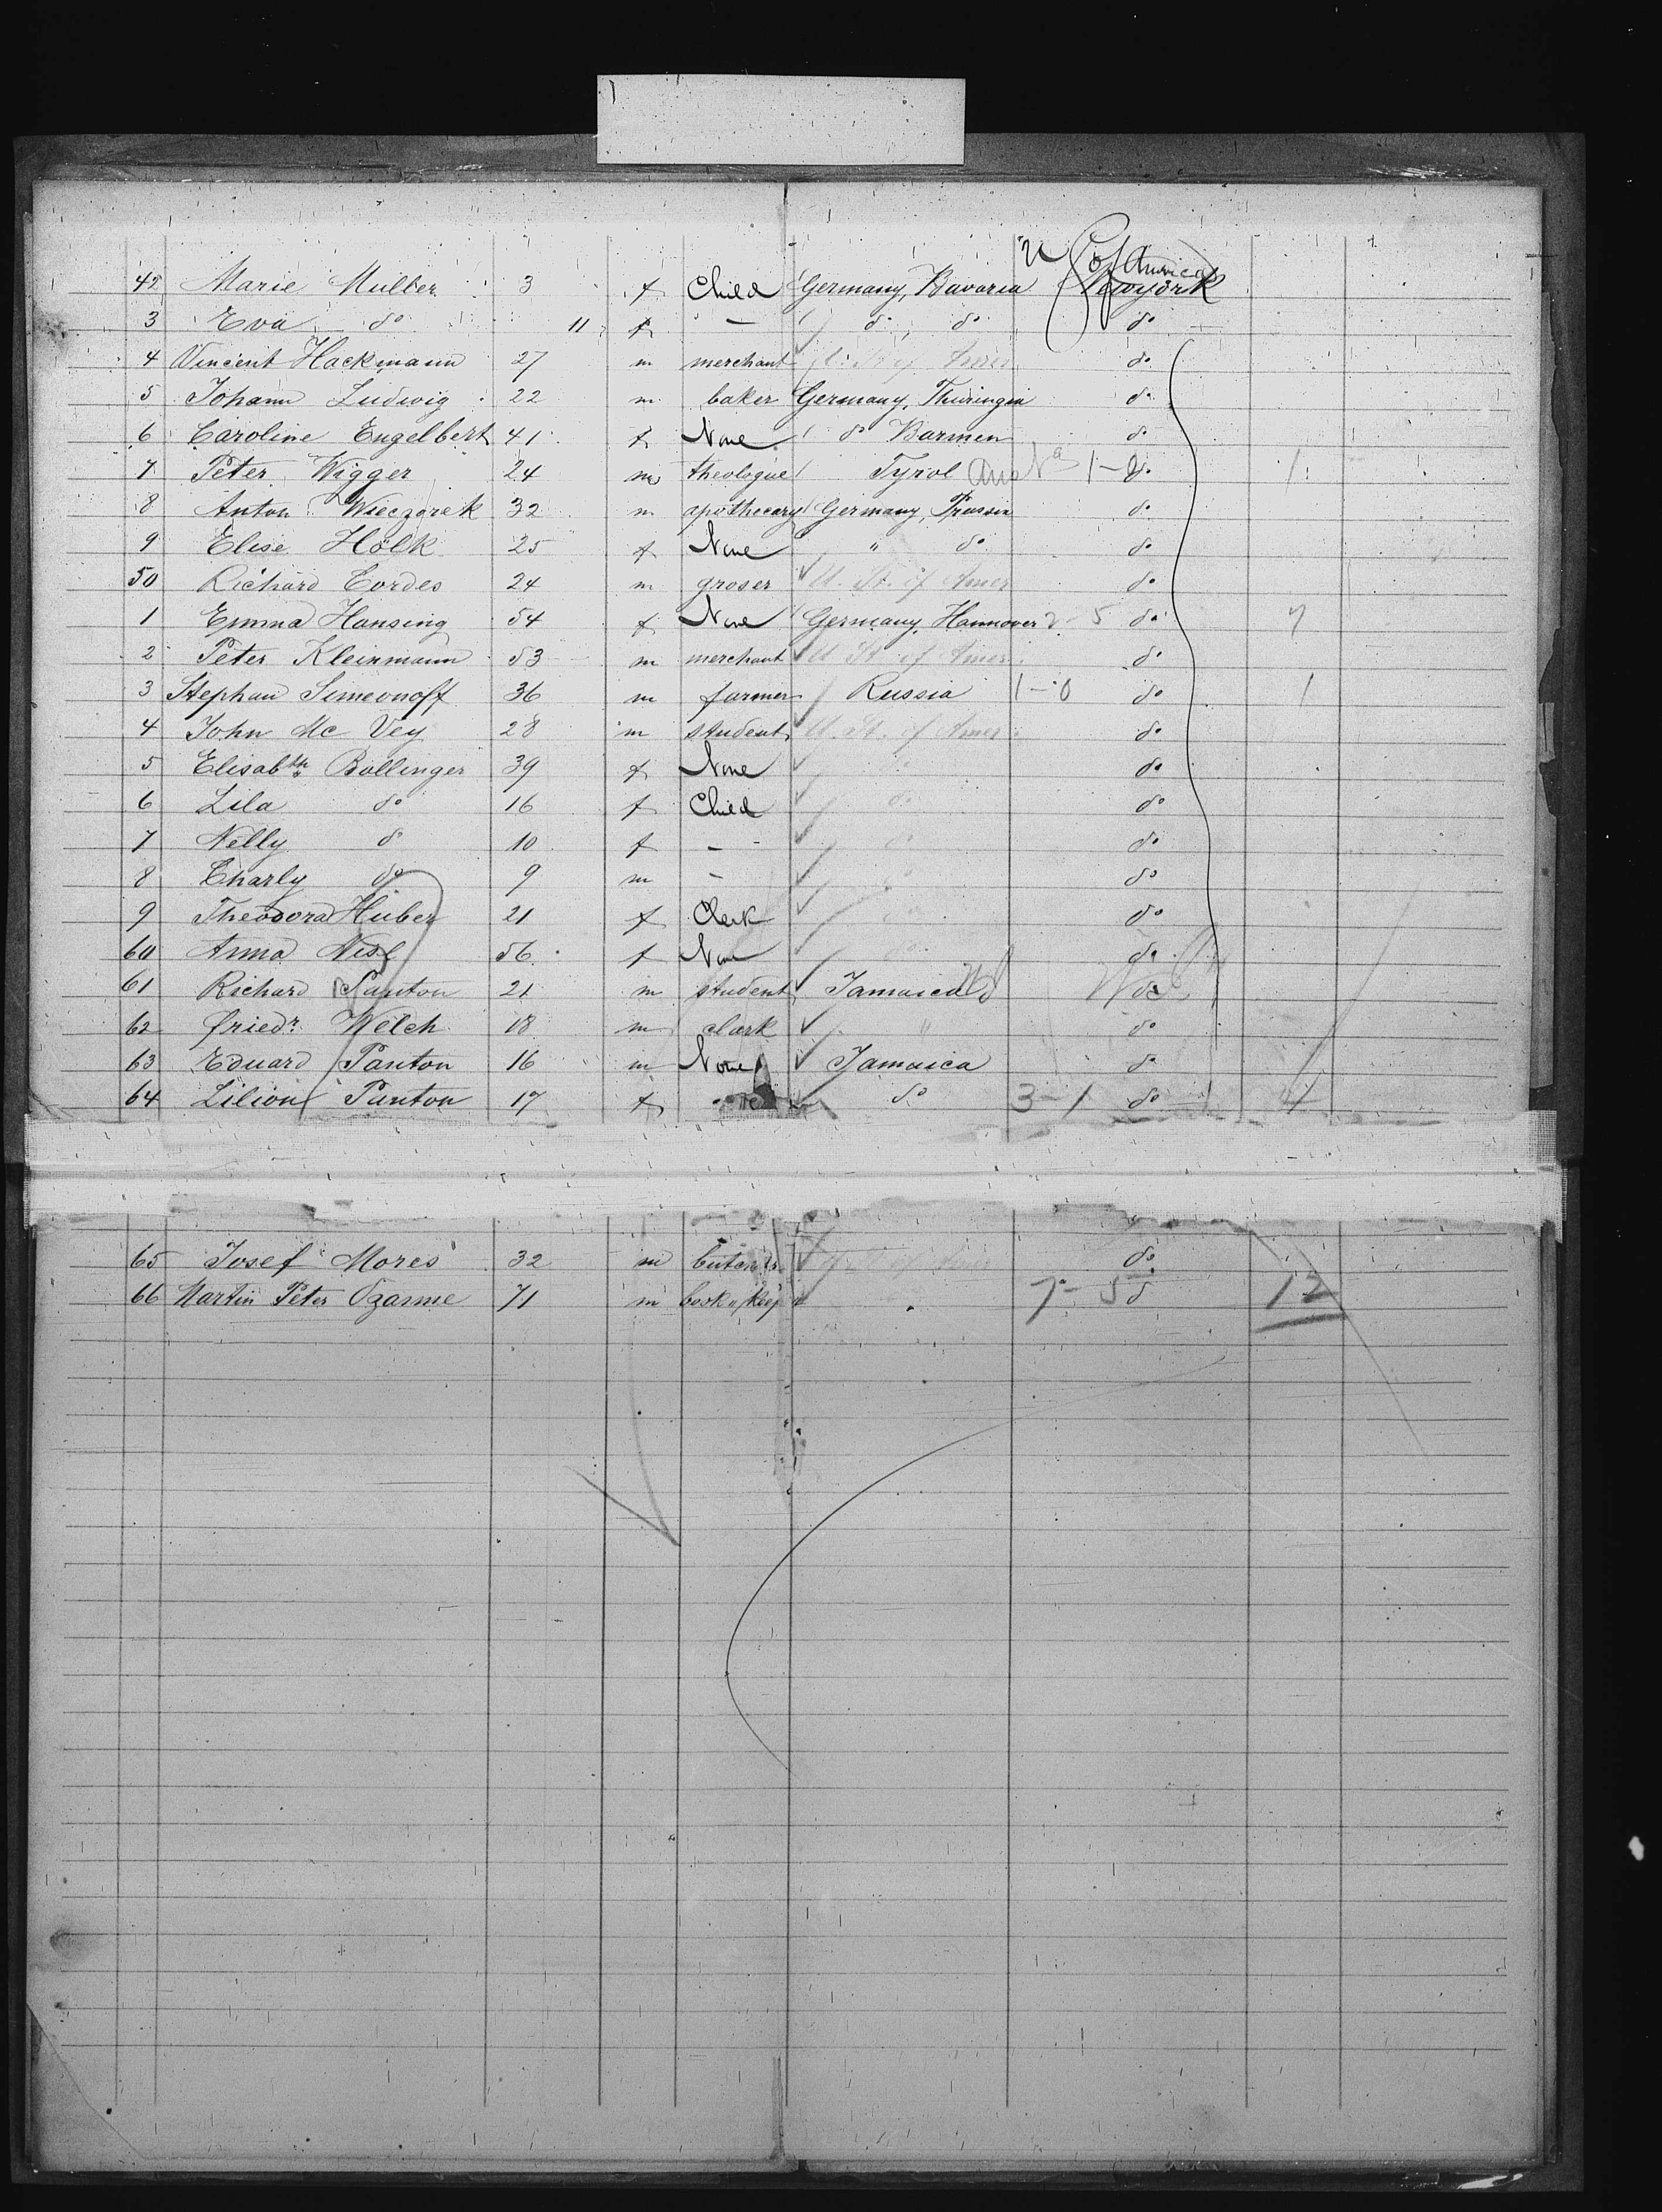 U S of America
42 Marie Muller 3 f Child Germany, Bavaria Newyork
3 Eva do 11 f — do do do
4 Vincent Hackmann 27 m merchant U. St. of Amer do
5 Johann Ludwig 22 m baker Germany, Thuringia do
6 Caroline Engelbert 41 f None do Barmen do
7 Peter Wigger 24 m theologue Tyrol Aust^a 1-0 do 1
8 Anton Wieczorek 32 m apothecary Germany, Prussia do
9 Elise Holk 25 f None " do do
50 Richard Cordes 24 m groser U. St. of Amer do
1 Emma Hansing 54 f None Germany, Hannover 2 5 do 7
2 Peter Kleinmann 53 m merchant U St of Amer do
3 Stephan Simeonoff 36 m farmer Russia 1-0 do 1
4 John Mc Vey 28 m student U. St. of Amer do
5 Elisabth Bollinger 39 f None do
6 Lila do 16 f Child do do
7 Nelly do 10 f — do do
8 Charly do 9 m — do do
9 Theodora Huber 21 f Clerk do
60 Anna Nisl 56 f None do do
61 Richard Panton 21 m student Jamaica do
62 Friedr. Welch 18 m clark " do
63 Eduard Panton 16 m None Jamaica do
64 Lilion Panton 17 f do 3-1 do 4
65 Josef Mores 32 m butcher do
66 Martin Peter Ozanne 71 m book keep 7-5 do 12